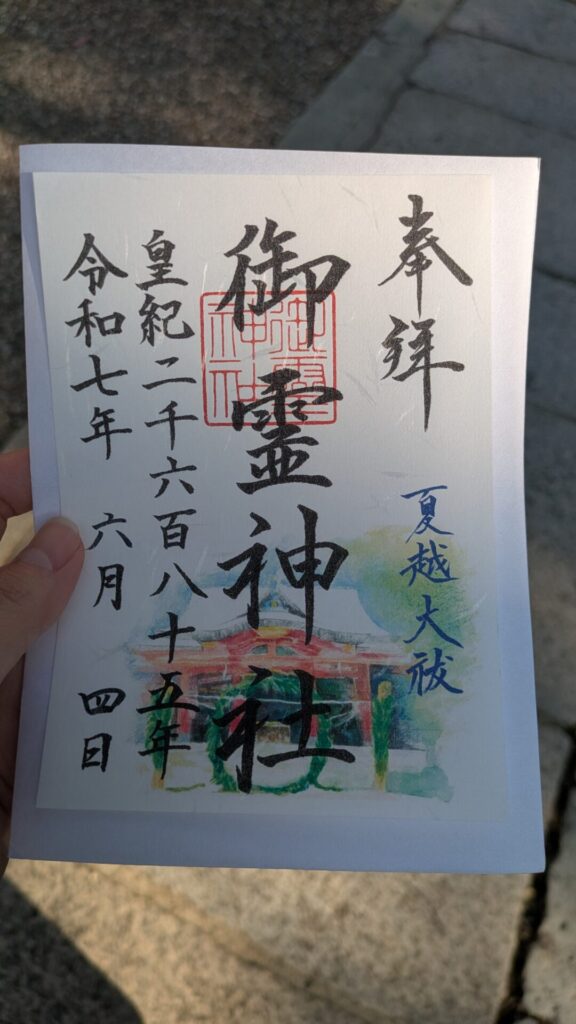 奉拝
夏越大祓
御霊神社
御霊神社
皇紀二千六百八十五年
令和七年 六月 四日